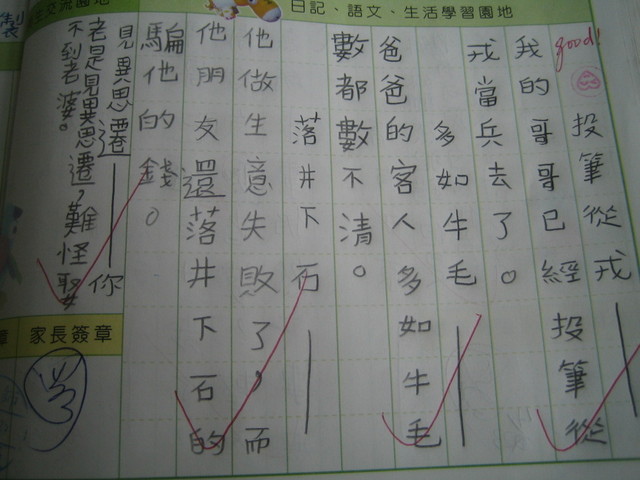 日記、語文、生活學習園地
交流園地
good!
投筆從戎——
我的哥哥已經投筆從
戎當兵去了。
多如牛毛——
爸爸的客人多如牛毛
數都數不清。
落井下石——
他做生意失敗了，而
他朋友還落井下石的
騙他的錢。
見異思遷——你
老是見異思遷，難怪娶
不到老婆。
家長簽章
章